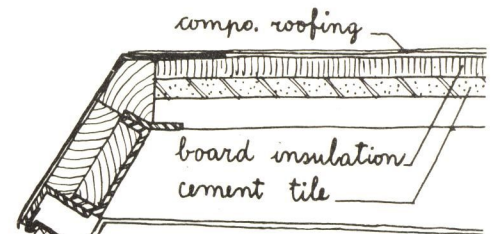 compo. roofing
board insulation
cement tile